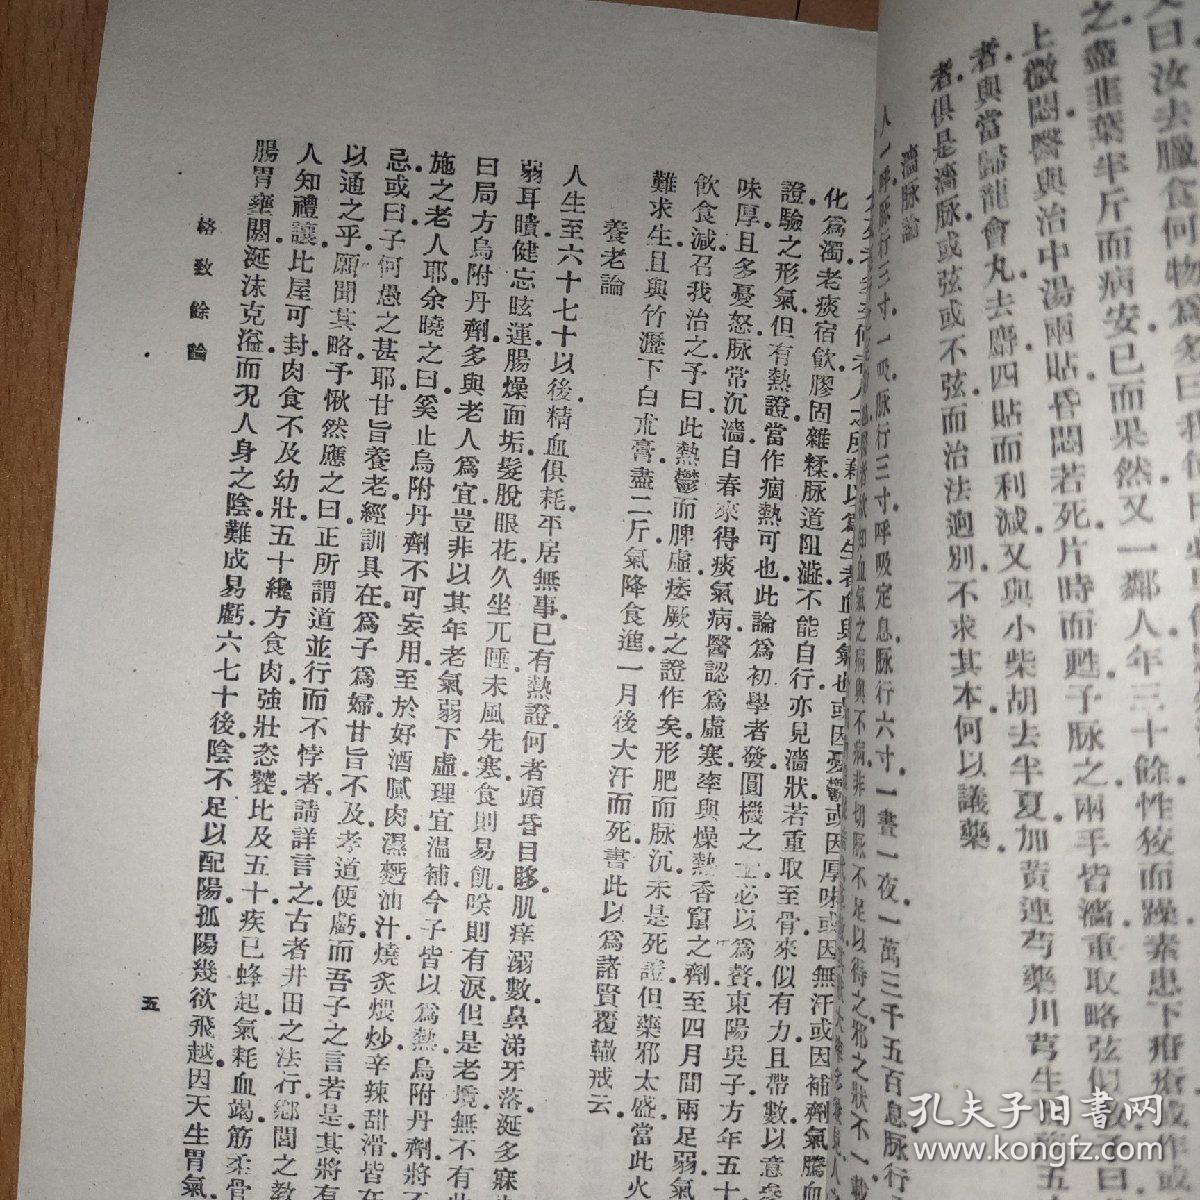 之盡韭葉半斤而病安已而果然又一鄰人年三十餘性狡而躁素患下疳瘡或作或
上微悶醫與治中湯兩貼昏悶若死片時而甦予脉之兩手皆濇重取略弦似數予曰
者與當歸龍會丸去麝四貼而利減又與小柴胡去半夏加黃連芍藥川芎生
者俱是濇脉或弦或不弦而治法迥別不求其本何以議藥
濇脉論
人一呼脉行三寸一吸脉行三寸呼吸定息脉行六寸一晝一夜一萬三千五百息脉行
化爲濁老痰宿飮膠固雜糅脉道阻澁不能自行亦見濇狀若重取至骨來似有力且帶數以意參
證驗之形氣但有熱證當作痼熱可也此論爲初學者發圓機之士必以爲贅東陽吳子方年五十
味厚且多憂怒脉常沉濇自春來得痰氣病醫認爲虛寒率與燥熱香竄之劑至四月間兩足弱氣
飮食減召我治之予曰此熱鬱而脾虛痿厥之證作矣形肥而脉沉未是死證但藥邪太盛當此火
難求生且與竹瀝下白朮膏盡二斤氣降食進一月後大汗而死書此以爲諸賢覆轍戒云
養老論
人生至六十七十以後精血俱耗平居無事已有熱證何者頭昏目眵肌痒溺數鼻涕牙落涎多寐
弱耳聵健忘眩運腸燥面垢髮脫眼花久坐兀睡未風先寒食則易飢笑則有淚但是老境無不有
曰局方烏附丹劑多與老人爲宜豈非以其年老氣弱下虛理宜溫補今子皆以爲熱烏附丹劑將不
施之老人耶余曉之曰奚止烏附丹劑不可妄用至於好酒膩肉濕麪油汁燒炙煨炒辛辣甜滑皆在
忌或曰子何愚之甚耶甘旨養老經訓具在爲子爲婦甘旨不及孝道便虧而吾子之言若是其將有
以通之乎願聞其略予愀然應之曰正所謂道並行而不悖者請詳言之古者井田之法行鄕閭之教
人知禮讓比屋可封肉食不及幼壯五十纔方食肉強壯恣饕比及五十疾已蜂起氣耗血竭筋柔骨
腸胃壅閼涎沫充溢而况人身之陰難成易虧六七十後陰不足以配陽孤陽幾欲飛越因天生胃氣
格致餘論
五
孔夫子旧书网
www.kongfz.com